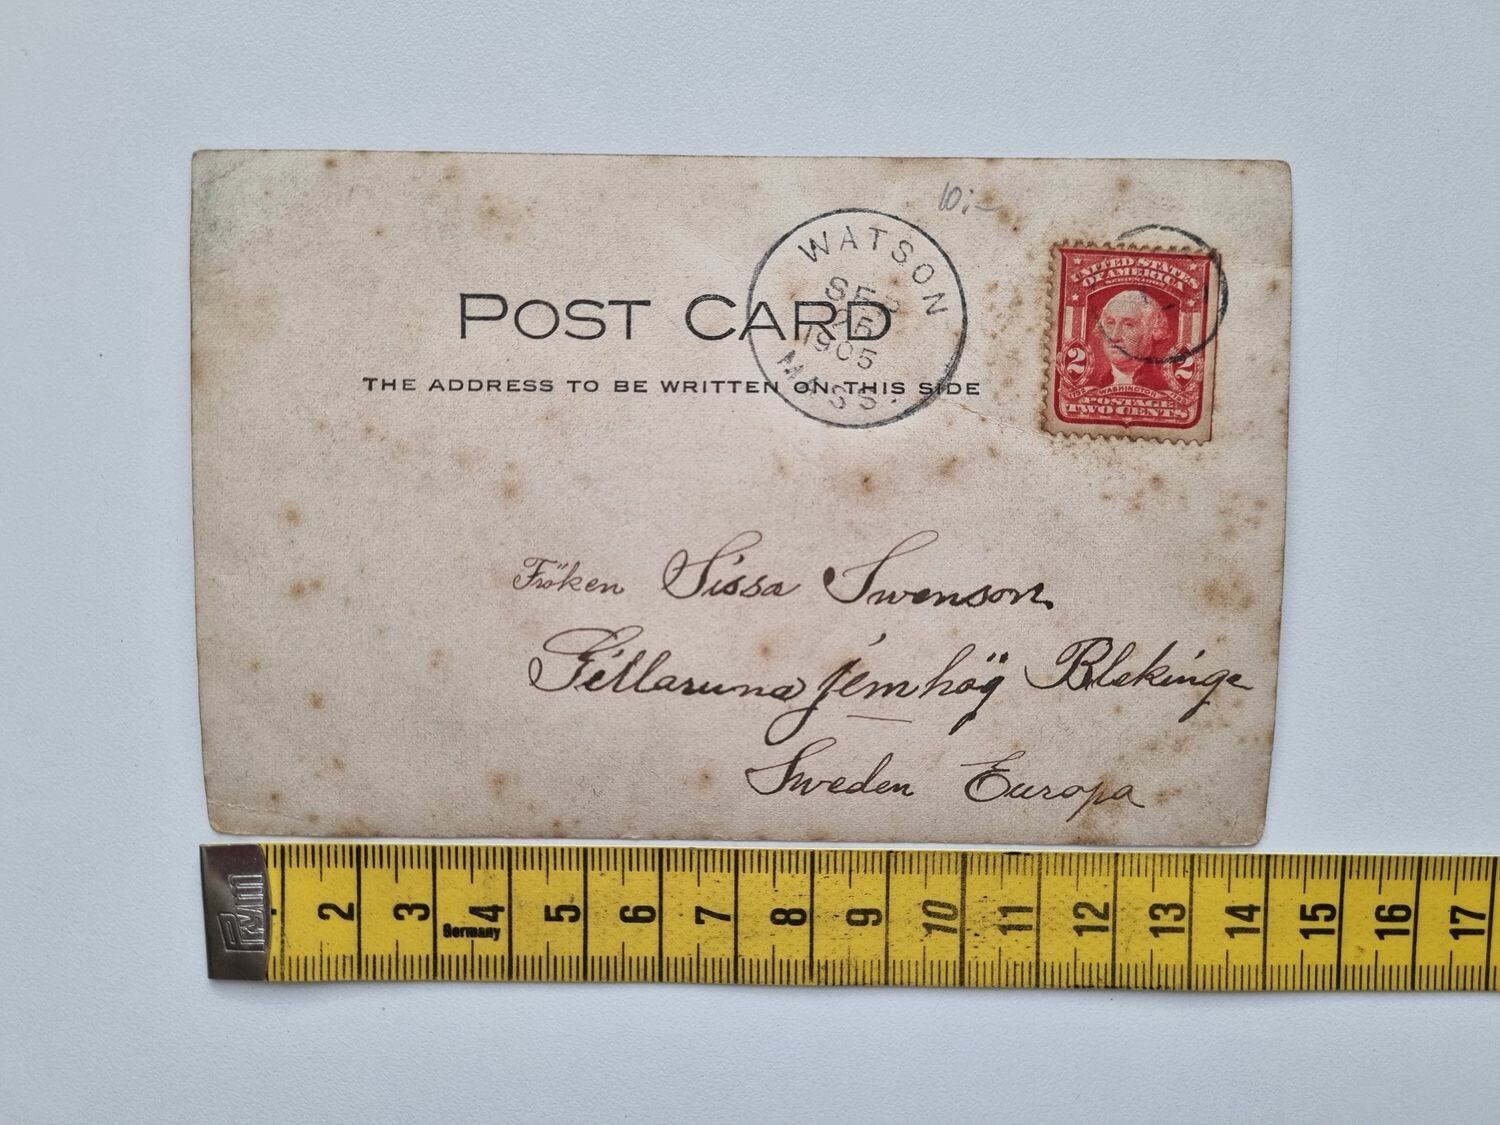 10:-
WATSON
SEP
26
1905
MASS.
POST CARD
THE ADDRESS TO BE WRITTEN ON THIS SIDE
UNITED STATES
OF AMERICA
SERIES 1902
2 2
1732 WASHINGTON 1799
POSTAGE
TWO CENTS
Fröken Sissa Swenson.
Gillaruna Jemhög Blekinge
Sweden Europa
Prym
2 3 4 5 6 7 8 9 10 11 12 13 14 15 16 17
Germany